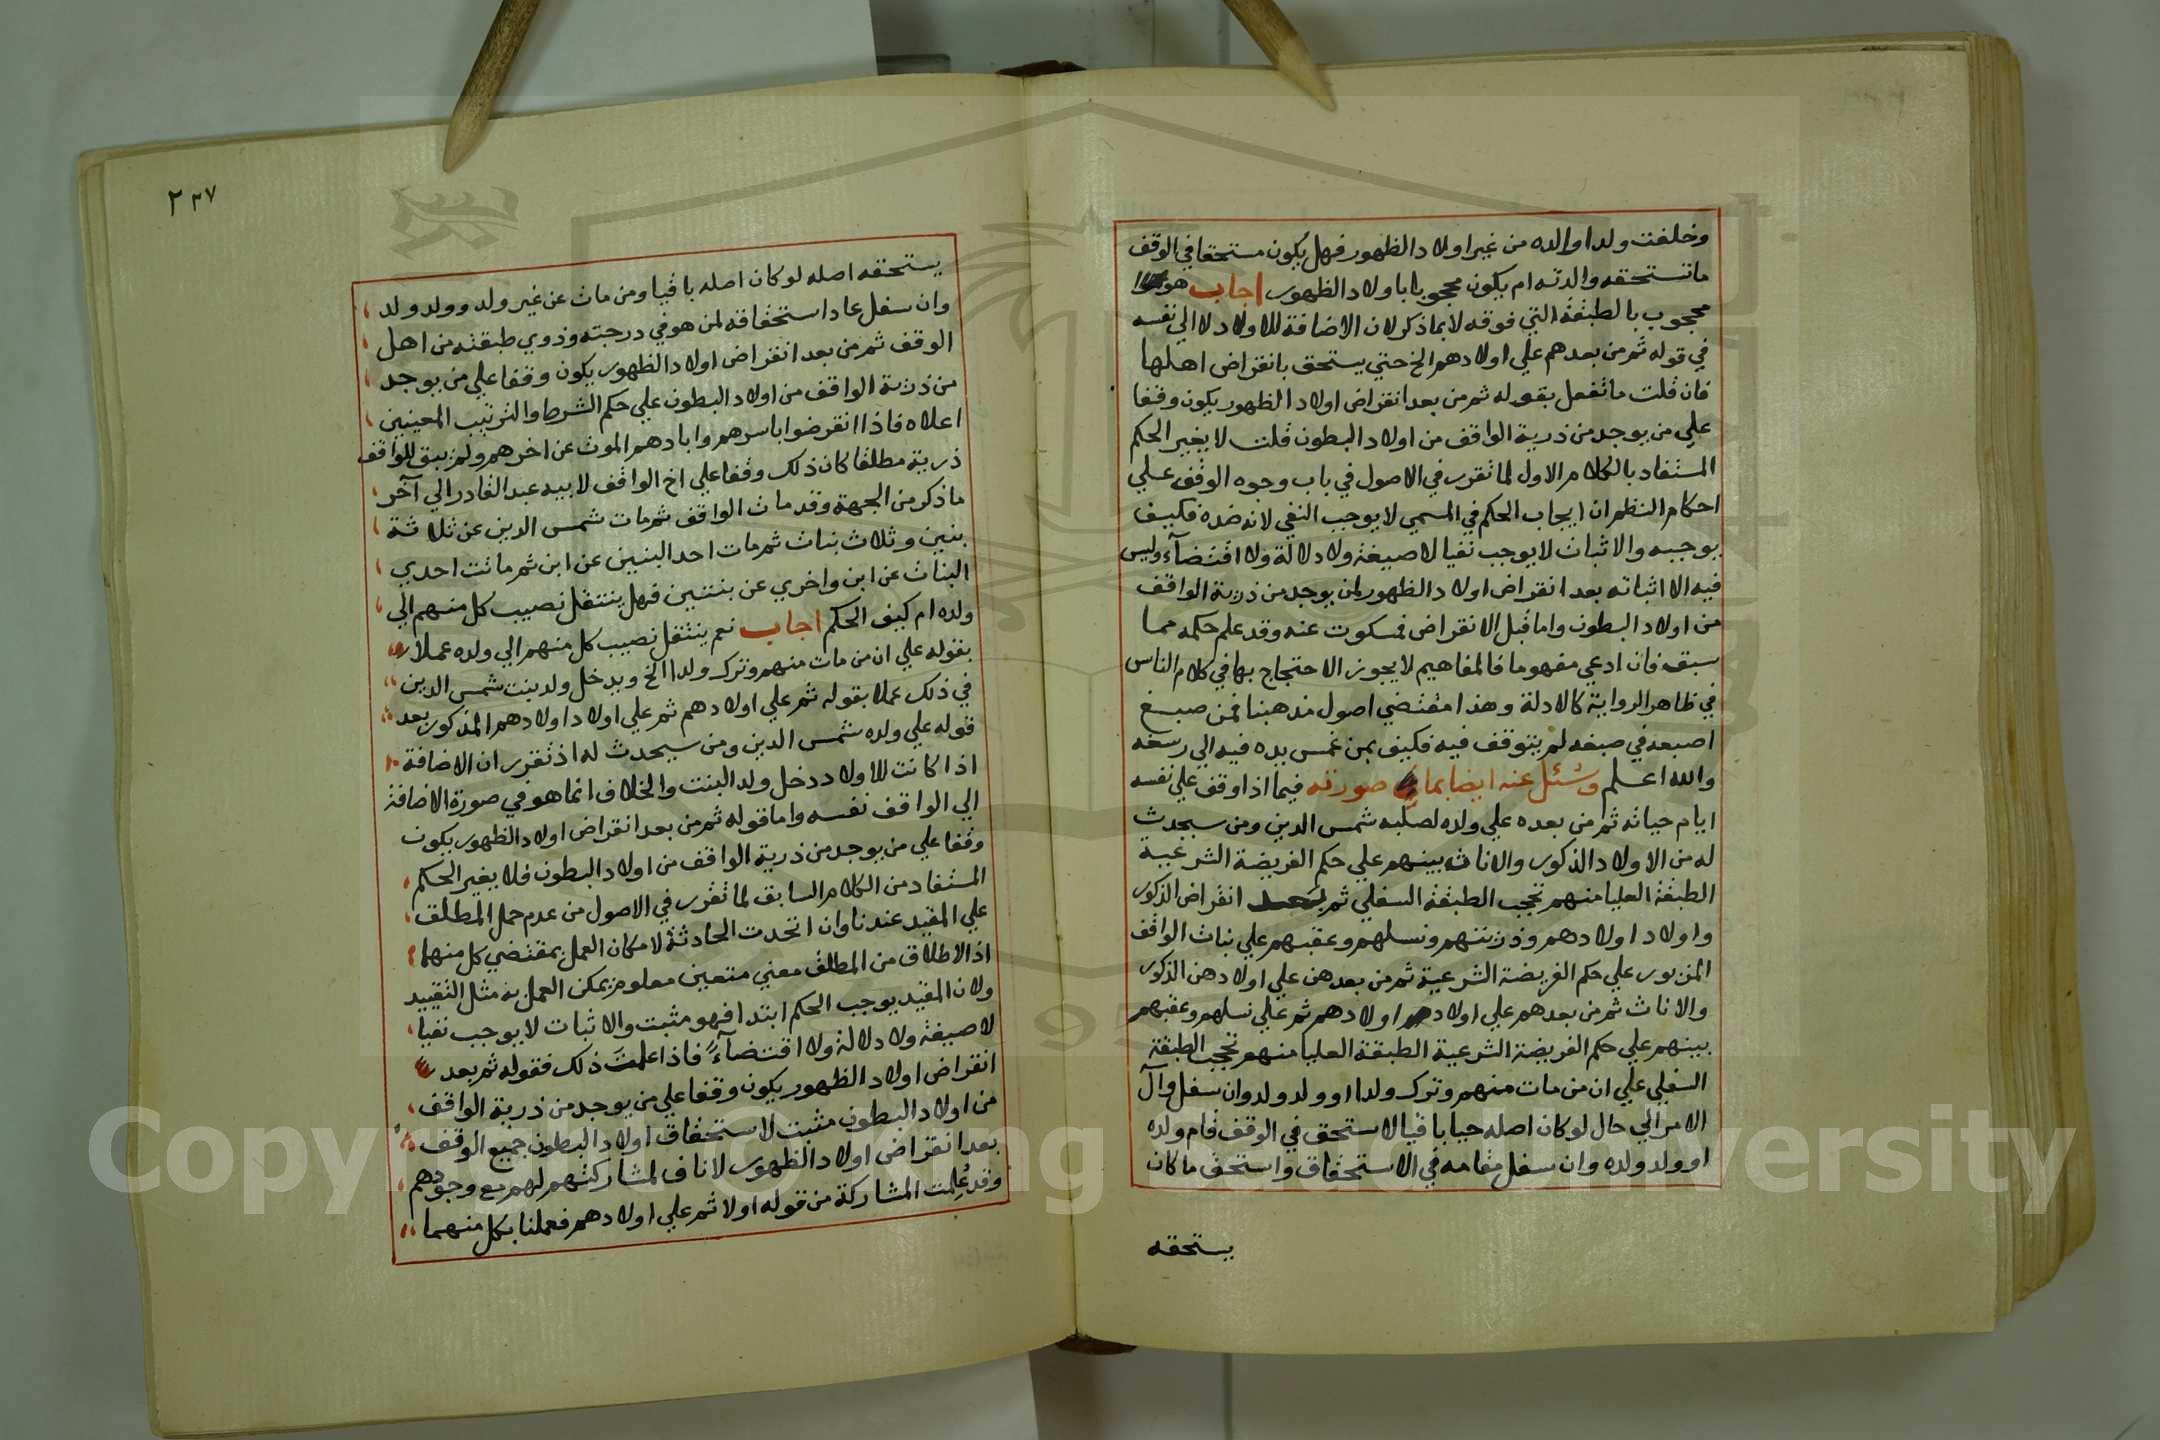 وخلفت ولدا والده من غير اولاد الظهور فهل يكون مستحقا في الوقف
ما تستحقه والدته ام يكون محجوبا باولاد الظهور اجاب هو
محجوب بالطبقة التي فوقه لا بما ذكر لان الاضافة للاولاد لا الي نفسه
في قوله ثم من بعدهم علي اولادهم الخ حتي يستحق بانقراض اهلها
فان قلت ما تفعل بقوله ثم من بعد انقراض اولاد الظهور يكون وقفا
علي من يوجد من ذرية الواقف من اولاد البطون قلت لا يغير الحكم
المستفاد بالكلام الاول لما تقرر في الاصول في باب وجوه الوقف علي
احكام النظم ان ايجاب الحكم في المسمي لا يوجب النفي لانه ضده فكيف
يوجبه والاثبات لا يوجب نفيا لا صيغة ولا دلالة ولا اقتضآء وليس
فيه الا اثباته بعد انقراض اولاد الظهور لمن يوجد من ذرية الواقف
من اولاد البطون واما قبل الانقراض فمسكوت عنه وقد علم حكمه مما
سبق فان ادعي مفهوما فالمفاهيم لا يجوز الاحتجاج بها في كلام الناس
في ظاهر الرواية كالادلة وهذا مقتضي اصول مذهبنا فمن صبغ
اصبعه في صبغه لم يتوقف فيه فكيف بمن غمس يده فيه الي رسغه
والله اعلم وسئل عنه ايضا بما صورته فيما اذا وقف علي نفسه
ايام حياته ثم من بعده علي ولده لصلبه شمس الدين ومن سيحدث
له من الاولاد الذكور والاناث بينهم علي حكم الفريضة الشرعية
الطبقة العليا منهم تحجب الطبقة السفلي ثم بعد انقراض الذكور
واولاد اولادهم وذريتهم ونسلهم وعقبهم علي بنات الواقف
المزبور علي حكم الفريضة الشرعية ثم من بعدهن علي اولادهن الذكور
والاناث ثم من بعدهم علي اولاد اولادهم ثم علي نسلهم وعقبهم
بينهم علي حكم الفريضة الشرعية الطبقة العليا منهم تحجب الطبقة
السفلي علي ان من مات منهم وترك ولدا او ولد ولد وان سفل وآل
الامر الي حال لو كان اصله حيا باقيا لاستحق في الوقف قام ولده
او ولد ولده وان سفل مقامه في الاستحقاق واستحق ما كان
يستحقه
٢٣٧
يستحقه اصله لو كان اصله باقيا ومن مات عن غير ولد وولد ولد
وان سفل عاد استحقاقه لمن هو في درجته وذوي طبقته من اهل
الوقف ثم من بعد انقراض اولاد الظهور يكون وقفا علي من يوجد
من ذرية الواقف من اولاد البطون علي حكم الشرط والترتيب المعينين
اعلاه فاذا انقرضوا باسرهم وابادهم الموت عن اخرهم ولم يبق للواقف
ذرية مطلقا كان ذلك وقفا علي اخ الواقف لابيه عبد القادر الي آخر
ما ذكر من الجهة وقد مات الواقف ثم مات شمس الدين عن ثلاثة
بنين وثلاث بنات ثم مات احد البنين عن ابن ثم ماتت احدي
البنات عن ابن واخري عن بنتين فهل ينتقل نصيب كل منهم الي
ولده ام كيف الحكم اجاب نعم ينتقل نصيب كل منهم الي ولده عملا
بقوله علي ان من مات منهم وترك ولدا الخ ويدخل ولد بنت شمس الدين
في ذلك عملا بقوله ثم علي اولادهم ثم علي اولاد اولادهم المذكور بعد
قوله علي ولده شمس الدين ومن سيحدث له اذ تقرر ان الاضافة
اذا كانت للاولاد دخل ولد البنت والخلاف انما هو في صورة الاضافة
الي الواقف نفسه واما قوله ثم من بعد انقراض اولاد الظهور يكون
وقفا علي من يوجد من ذرية الواقف من اولاد البطون فلا يغير الحكم
المستفاد من الكلام السابق لما تقرر في الاصول من عدم حمل المطلق
علي المقيد عندنا وان اتحدت الحادثة لامكان العمل بمقتضي كل منهما
اذ الاطلاق من المطلق معني متعين معلوم يمكن العمل به مثل التقييد
ولان المقيد يوجب الحكم ابتدا فهو مثبت والاثبات لا يوجب نفيا
لا صيغة ولا دلالة ولا اقتضآءً فاذا علمت ذلك فقوله ثم بعد
انقراض اولاد الظهور يكون وقفا علي من يوجد من ذرية الواقف
من اولاد البطون مثبت لاستحقاق اولاد البطون جميع الوقف
بعد انقراض اولاد الظهور لا ناف لمشاركتهم لهم مع وجودهم
وقد عُلمت المشاركة من قوله اولا ثم علي اولادهم فعملنا بكل منهما